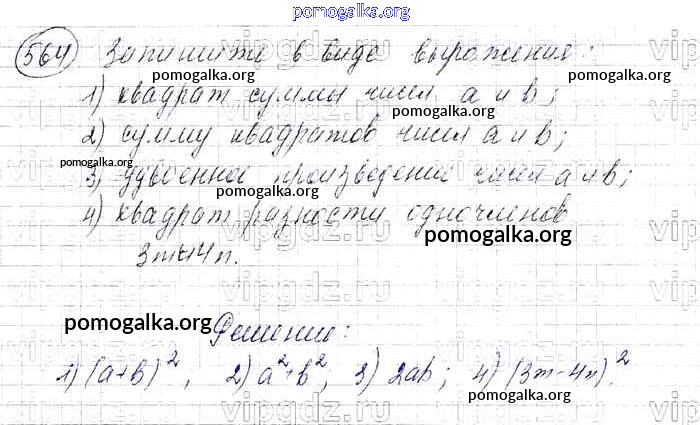 pomogalka.org
564 Запишите в виде выражения:
pomogalka.org
1) квадрат суммы чисел a и b;
pomogalka.org
2) сумму квадратов чисел a и b;
pomogalka.org
3) удвоенное произведение чисел a и b;
pomogalka.org
4) квадрат разности одночленов
pomogalka.org
3m и 4n.
vipgdz.ru
pomogalka.org
Решение:
1) (a+b)², 2) a²+b², 3) 2ab; 4) (3m-4n)².
pomogalka.org
vipgdz.ru